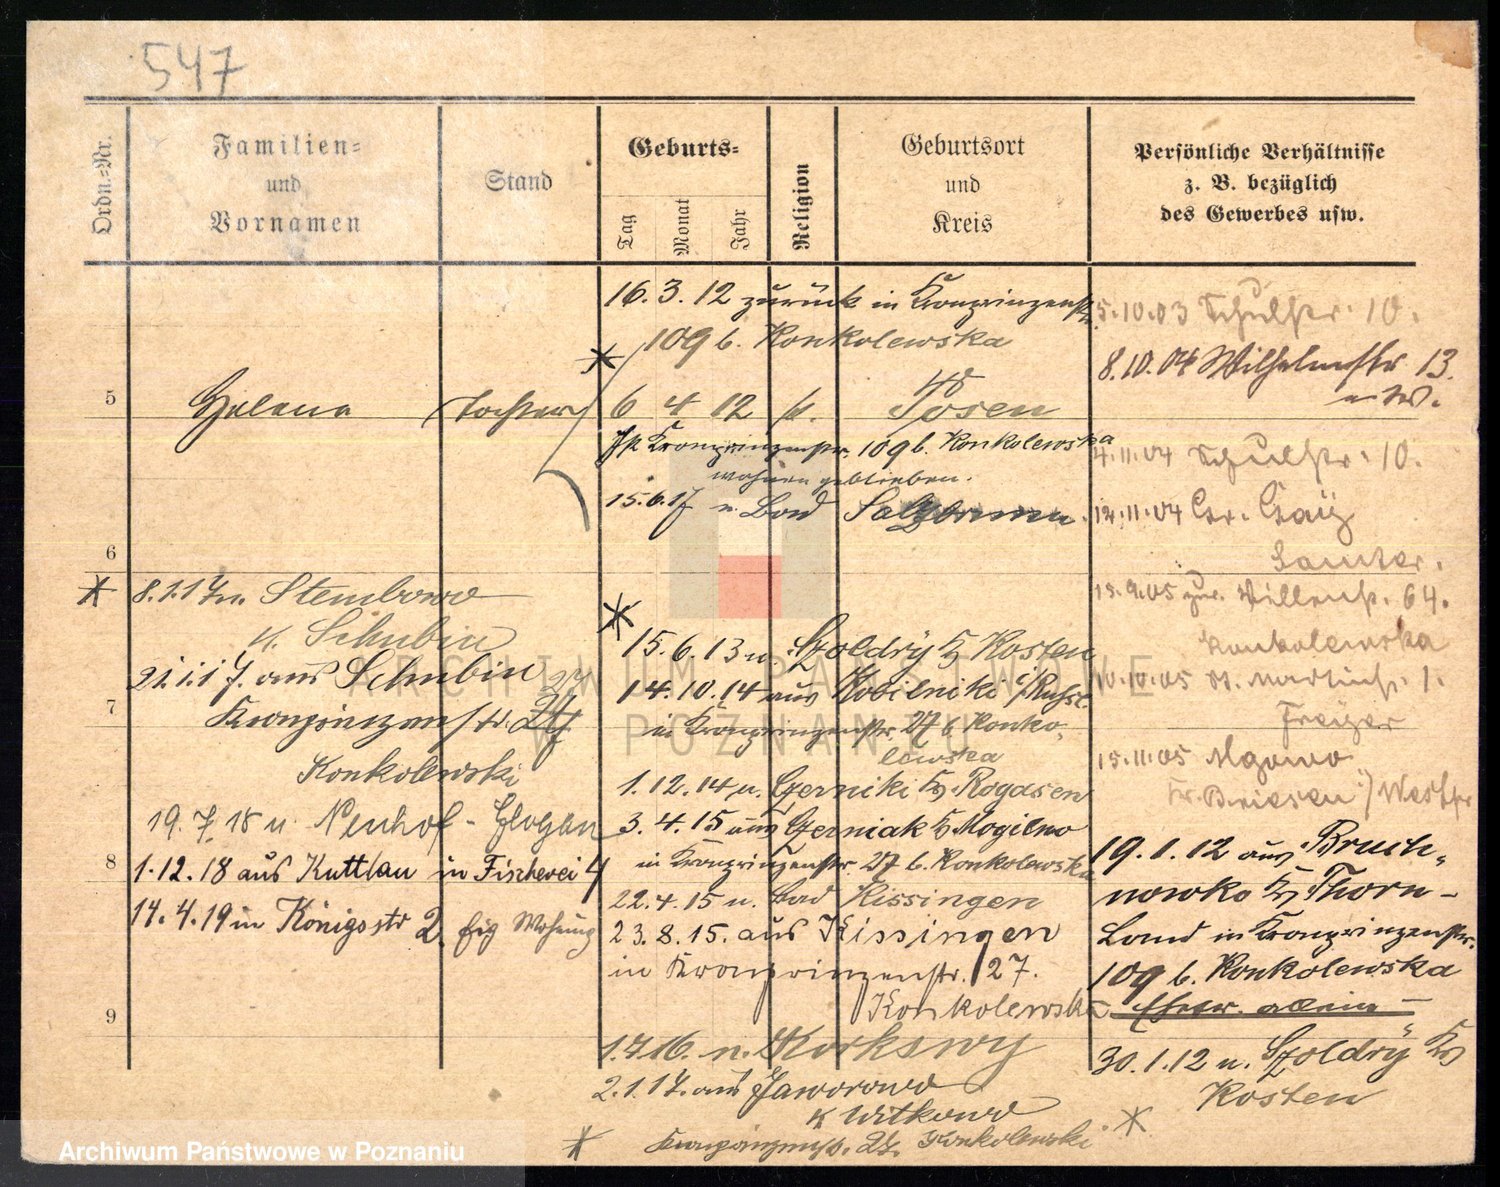 547
Ordn.-Nr.
Familien-
und
Vornamen
Stand
Geburts-
Tag
Monat
Jahr
Religion
Geburtsort
und
Kreis
Persönliche Verhältnisse
z. B. bezüglich
des Gewerbes usw.
16. 3. 12 zurück in Kronprinzenstr.
109 b. Konkolewska
5
Helena Tochter 6 4 12 k. Posen
Kronprinzenstr. 109 b. Konkolewska
wohnen geblieben.
15.6.17 n. Bad Salzbrunn.
6
8.1.17 n. Stembowo
K. Schubin
21.1.17. aus Schubin
7
Kronprinzenstr. 27
Konkolewski
19. 7. 18 n. Neuhof - Glogau
8
1.12.18 aus Kuttlau in Fischerei 4
14. 4. 19 in Königsstr 2. eig Wohnung
9
15. 6. 13 n. Szoldry Kr Kosten
14. 10. 14 aus Kobilniki i/Russl.
in Kronprinzenstr. 27 b. Konko-
lewska
1. 12. 14 n. Czerniki Kr Rogasen
3. 4. 15 aus Czerniak Kr Mogilno
in Kronprinzenstr 27 b. Konkolewska
22. 4. 15 n. Bad Kissingen
23. 8. 15. aus Kissingen
in Kronprinzenstr. 27.
Konkolewska
1.7.16. n. Korkswy
2.1.17. aus Jaworowo
K Witkowo
Kronprinzenstr. 27. Konkolewski
5.10.03 Schulstr. 10.
8.10.04 Wilhelmstr 13.
4.11.04 Schulstr. 10.
12.11.04 Gr. Gay
Samter.
15.9.05 zur. 64.
Konkolewska
10.10.05 St. Martinstr. 1.
Freyer
15.11.05 Mgowo
Kr. Briesen i/Westpr
19. 1. 12 aus Brusch-
nowko Kr Thorn-
Land in Kronprinzenstr.
109 b. Konkolewska
Ehefr. allein -
30. 1. 12 n. Szoldry Kr
Kosten
ARCHIWUM PAŃSTWOWE
W POZNANIU
Archiwum Państwowe w Poznaniu